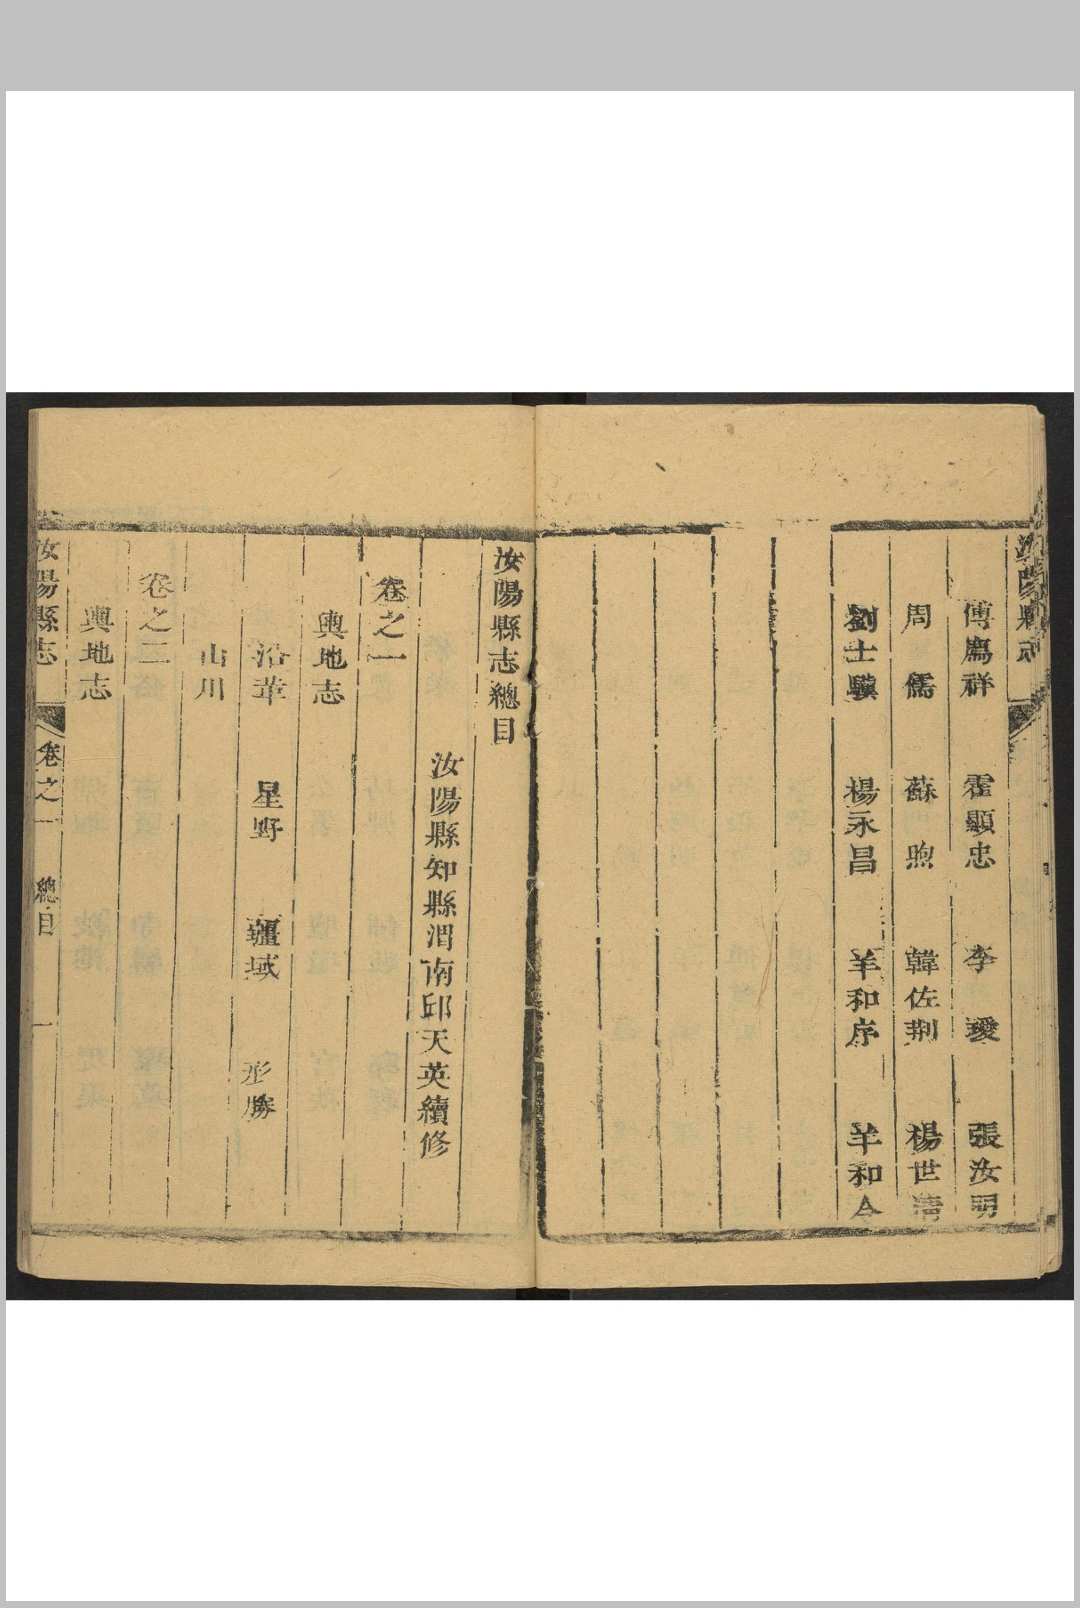 汝陽縣志
傅鳳祥 霍顯忠 李璦 張汝明
周儒 蘇煦 韓佐荆 楊世清
劉士驥 楊永昌 羊和序 羊和令
汝陽縣志總目
汝陽縣知縣渭南邱天英續修
卷之一
輿地志
沿革 星野 疆域 形勝
山川
卷之二
輿地志
汝陽縣志 卷之一 總目 一